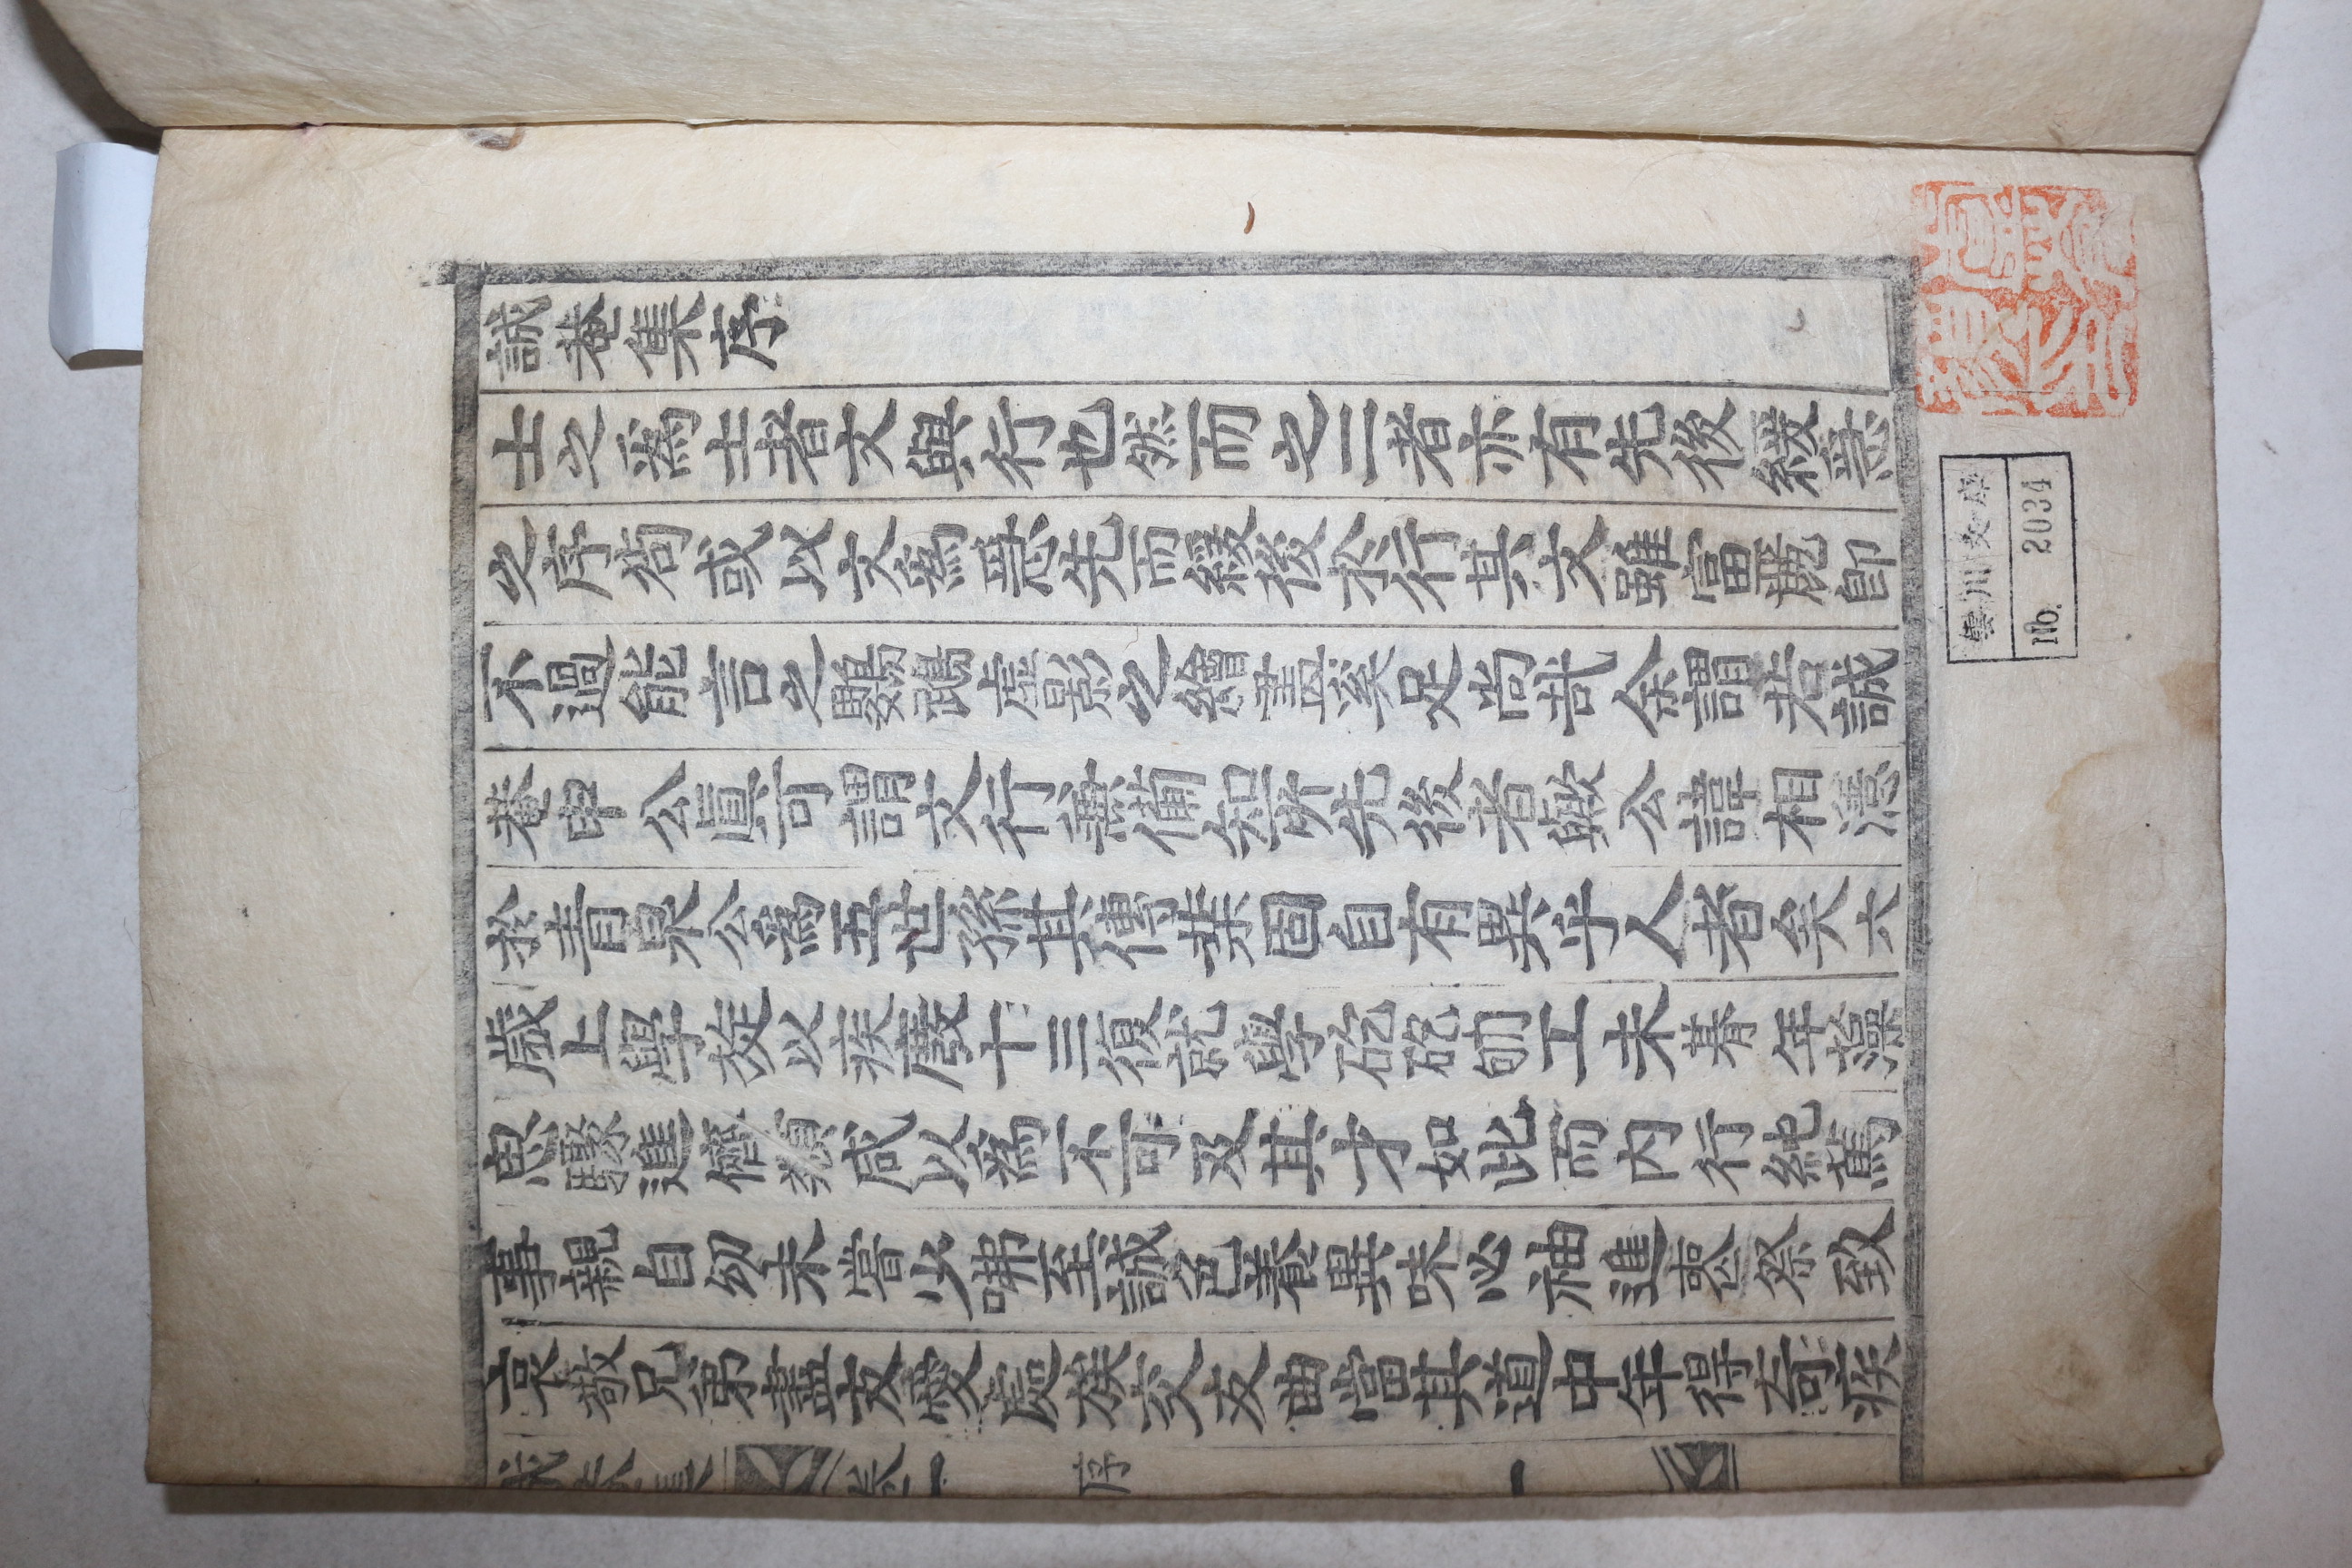 誠菴集序
士之爲士者文與行也然而之二者亦有先後緩急
之序苟或以文爲急先而緩後於行其文雖富麗卽
不過能言之鸚鵡虛影之繪畫奚足尚哉余謂若誠
菴申公眞可謂文行兼備知所先後者歟公諱相憲
於靑泉公爲五世孫其傳業固自有異乎人者矣六
歲上學旋以疾廢十三復就學矻矻劬工未朞年藻
思驟進儕類咸以爲不可及其才如此而內行純篤
事親自幼未嘗少咈至誠色養異味必袖進喪祭致
哀敬兄弟盡友愛處族交友曲當其道中年得奇疾
誠菴集 卷一 序 一
雲川文庫
No. 2034